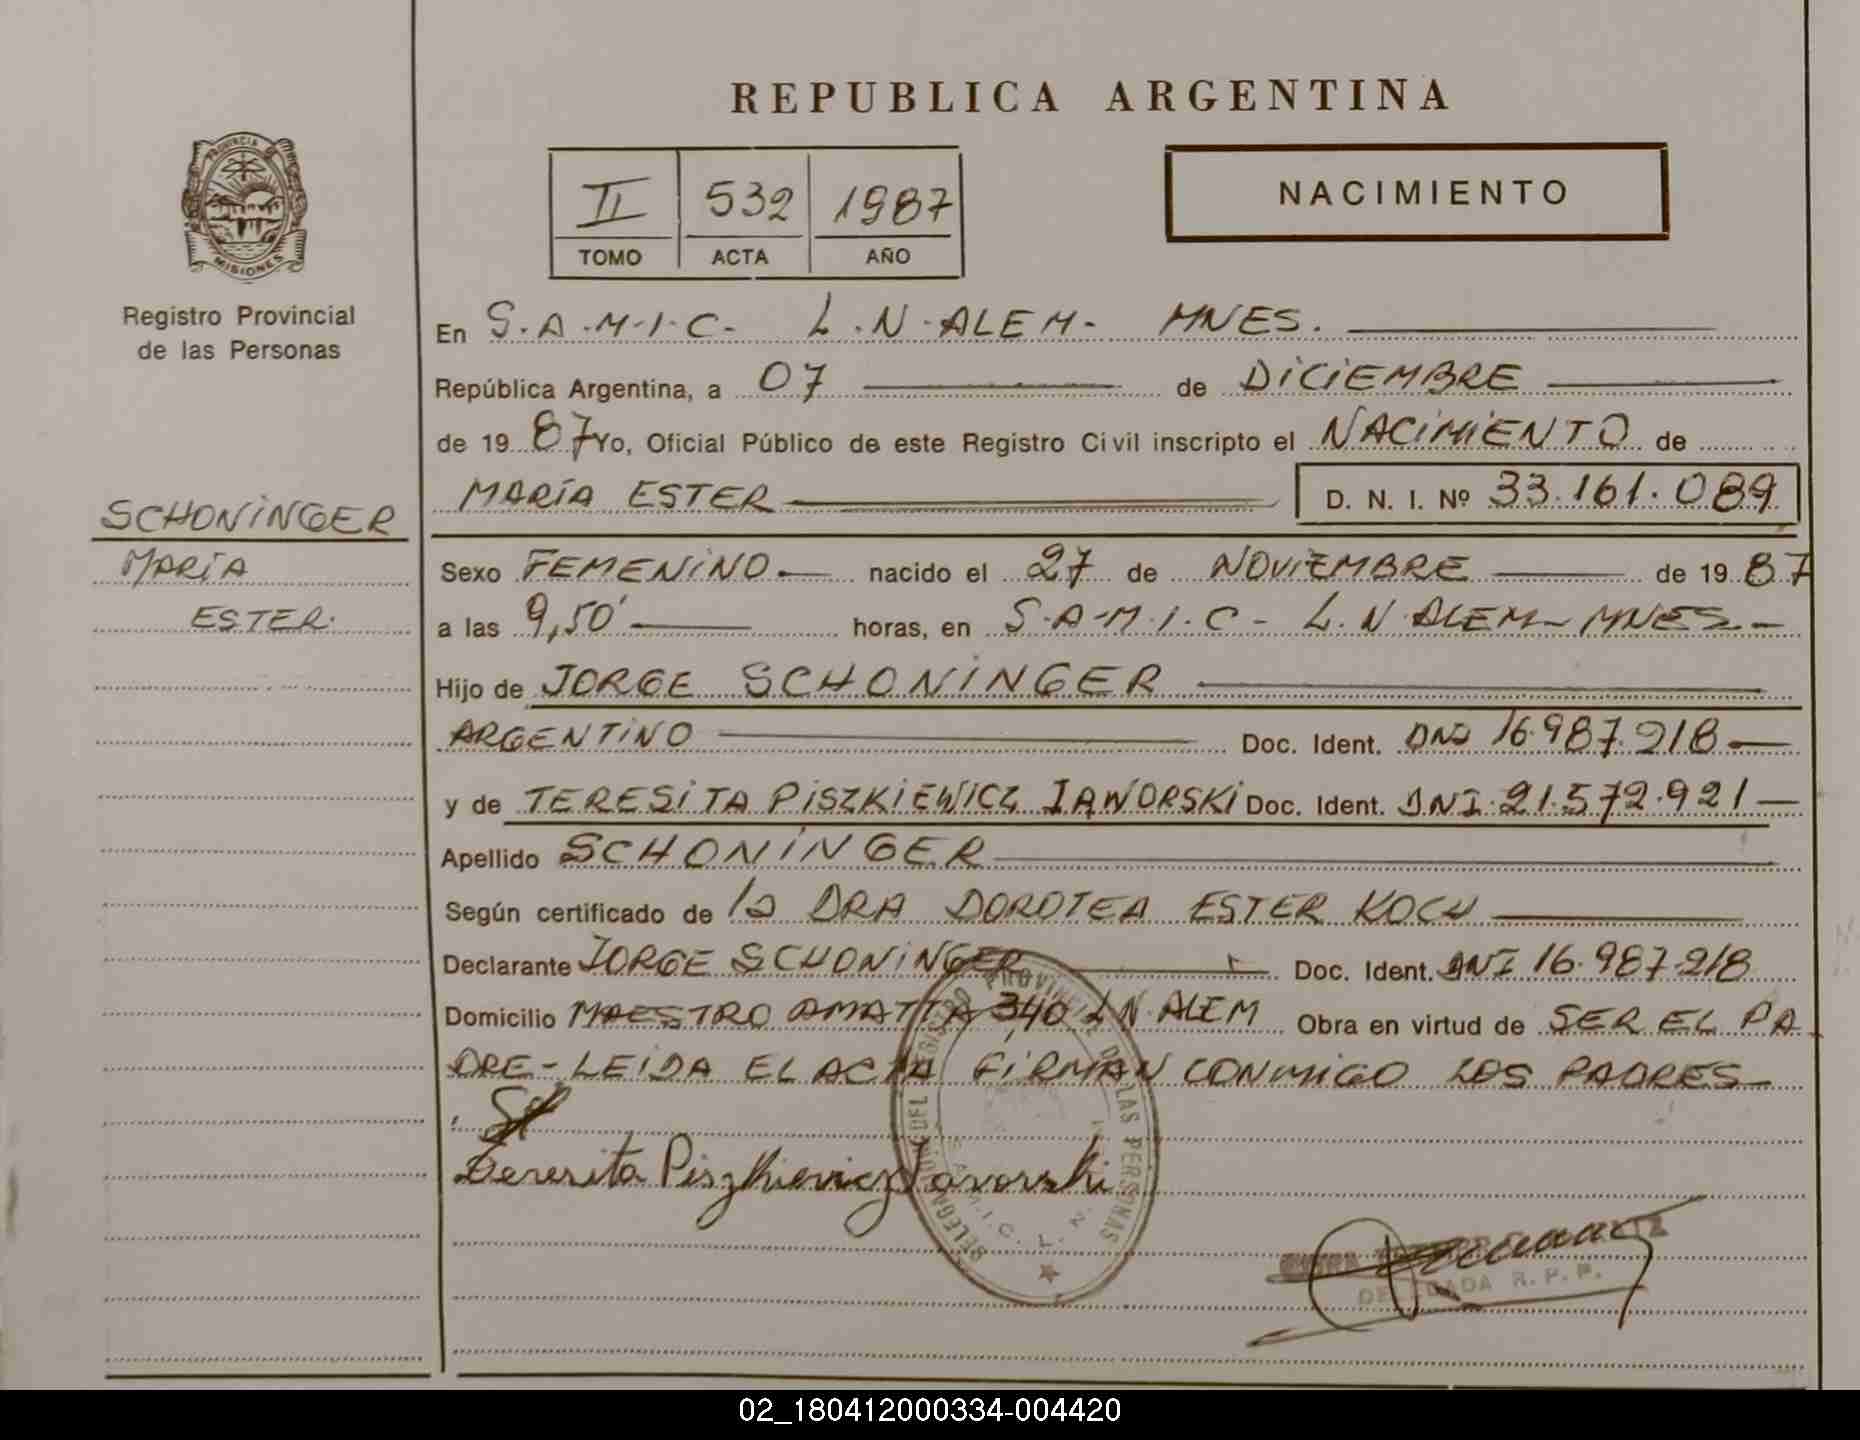 REPUBLICA ARGENTINA
PROVINCIA DE
MISIONES
Registro Provincial
de las Personas
II 532 1987
TOMO ACTA AÑO
NACIMIENTO
En S.A.M.I.C. L.N.ALEM- MNES.
República Argentina, a 07 de DICIEMBRE
de 19 87 Yo, Oficial Público de este Registro Civil inscripto el NACIMIENTO de
MARÍA ESTER D. N. I. Nº 33.161.089
SCHONINGER
MARÍA
ESTER.
Sexo FEMENINO.- nacido el 27 de NOVIEMBRE de 19 87
a las 9,50' horas, en S.A.M.I.C- L.N ALEM- MNES.-
Hijo de JORGE SCHONINGER
ARGENTINO Doc. Ident. DNI 16.987.218-
y de TERESITA PISZKIEWICZ IAWORSKI Doc. Ident. DNI.21.572.921-
Apellido SCHONINGER
Según certificado de la DRA DOROTEA ESTER KOCH
Declarante JORGE SCHONINGER Doc. Ident. DNI 16.987.218
Domicilio MAESTRO AMATTA 340 LN.ALEM Obra en virtud de SER EL PA
DRE-LEIDA EL ACTA FIRMAN CONMIGO LOS PADRES-
Teresita Piszkievicz Iavorski
DELEGACION DEL REGISTRO PROVINCIAL DE LAS PERSONAS
S.A.M.I.C. L. N.
DELEGADA R. P. P.
02_180412000334-004420